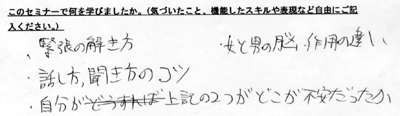 このセミナーで何を学びましたか。(気づいたこと、機能したスキルや表現など自由にご記
入ください。)
・緊張の解き方
・女と男の脳、作用の違い
・話し方、聞き方のコツ
・自分がどうすれば上記の2つがどこが不安だったか